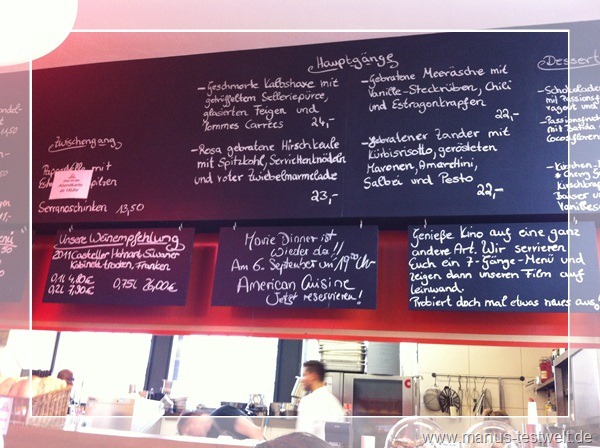 Hauptgänge
Dessert
- Geschmorte Kalbshaxe mit
getrüffeltem Selleriepürce,
glasierten Feigen und
Pommes Carrées 24,-
- Rosa gebratene Hirschkeule
mit Spitzkohl, Serviettenknödeln
und roter Zwiebelmarmelade
23,-
- Gebratene Meeräsche mit
Vanille-Steckrüben, Chili
und Estragonkrapfen
22,-
- Gebratener Zander mit
Kürbisrisotto, gerösteten
Maronen, Amarettini,
Salbei und Pesto
22,-
Zwischengang
mit
Serranoschinken 13,50
- Schokolade
mit Passionsf
- Passionsf
mit Batida
Cocosflores
- Kirschen
Cherry
Kirschbra
Baiser u
Vanilleso
Unsere Weinempfehlung
2011 Casteller Hohnart Silvaner
Kabinett trocken, Franken
0,1l 4,80€
0,2l 7,90€ 0,75l 26,00€
Movie Dinner ist
wieder da!!
Am 6. September um 19:00 Uhr
American Cuisine
Jetzt reservieren!
Genieße Kino auf eine ganz
andere Art. Wir servieren
Euch ein 7-Gänge-Menü und
zeigen dann unseren Film auf
Leinwand.
Probiert doch mal etwas neues aus!
www.manus-testwelt.de